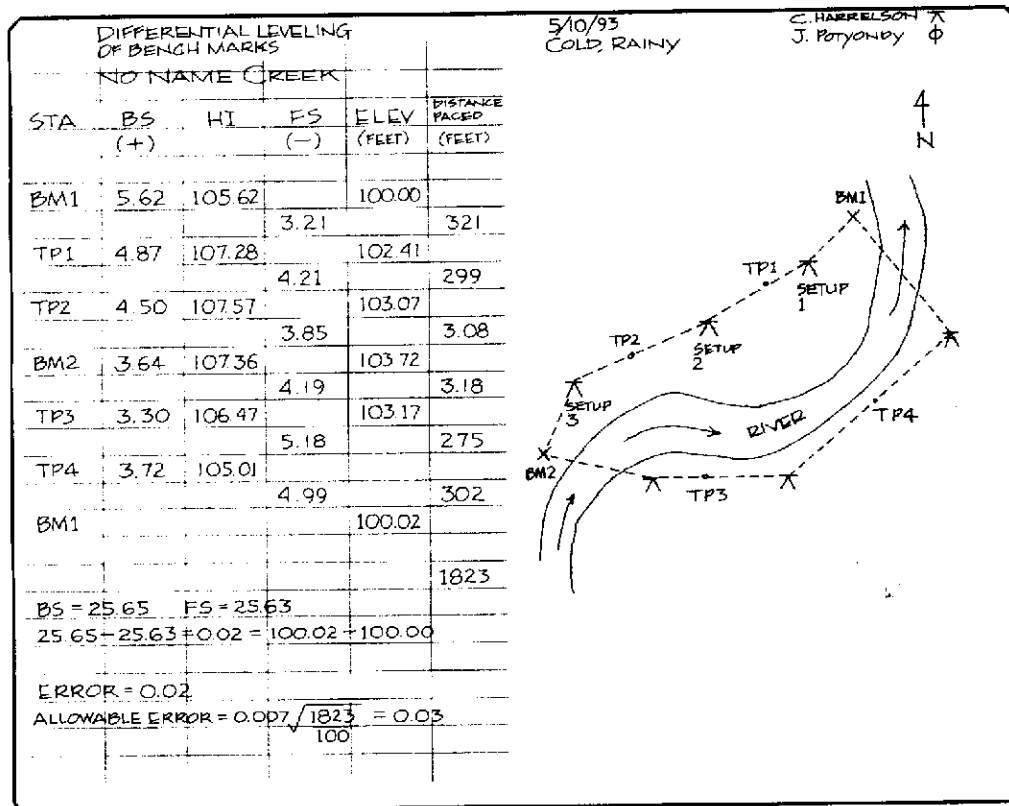 DIFFERENTIAL LEVELING
OF BENCH MARKS
NO NAME CREEK
5/10/93
COLD, RAINY
C. HARRELSON
J. POTYONDY
STA BS HI FS ELEV DISTANCE PACED
(+) (−) (FEET) (FEET)
BM1 5.62 105.62 100.00
3.21 321
TP1 4.87 107.28 102.41
4.21 299
TP2 4.50 107.57 103.07
3.85 3.08
BM2 3.64 107.36 103.72
4.19 3.18
TP3 3.30 106.47 103.17
5.18 275
TP4 3.72 105.01
4.99 302
BM1 100.02
1823
BS = 25.65 FS = 25.63
25.65 − 25.63 = 0.02 = 100.02 − 100.00
ERROR = 0.02
ALLOWABLE ERROR = 0.007 √1823/100 = 0.03
N
BM1
TP1
SETUP 1
SETUP 2
TP2
SETUP 3
BM2
RIVER
TP4
TP3